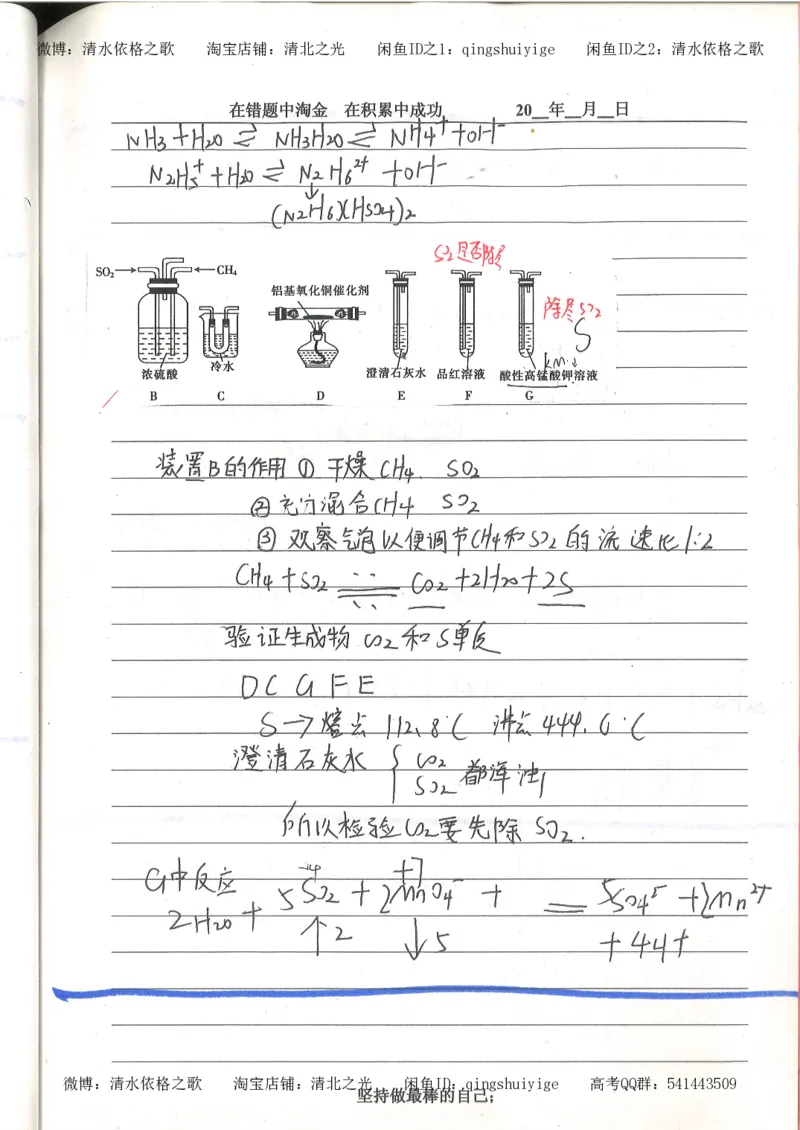 微博：清水依格之歌 淘宝店铺：清北之光 闲鱼ID之1：qingshuiyige 闲鱼ID之2：清水依格之歌
在错题中淘金 在积累中成功 20__年__月__日
NH3+H2O ⇌ NH3H2O ⇌ NH4⁺+OH⁻
N2H5⁺+H2O ⇌ N2H6²⁺+OH⁻
↓
(N2H6)(HSO4)2
SO2是否除尽
SO₂→ ←CH₄
铝基氧化铜催化剂
除尽SO2
S
冷水
浓硫酸 澄清石灰水 品红溶液 酸性高锰酸钾溶液
B C D E F G
装置B的作用 ① 干燥CH4、SO2
② 充分混合CH4 SO2
③ 观察气泡以便调节CH4和SO2的流速比1:2
CH4+SO2 == CO2+2H2O+2S
验证生成物CO2和S单质
D C G F E
S→熔点112.8℃ 沸点444.6℃
澄清石灰水 { CO2 SO2 都浑浊
所以检验CO2要先除SO2.
+4 +7
G中反应 5SO2+2MnO4⁻+ == 5SO4²⁻+2Mn²⁺
2H2O+ ↑2 ↓5 +4H+
微博：清水依格之歌 淘宝店铺：清北之光 闲鱼ID：qingshuiyige 高考QQ群：541443509
坚持做最棒的自己；